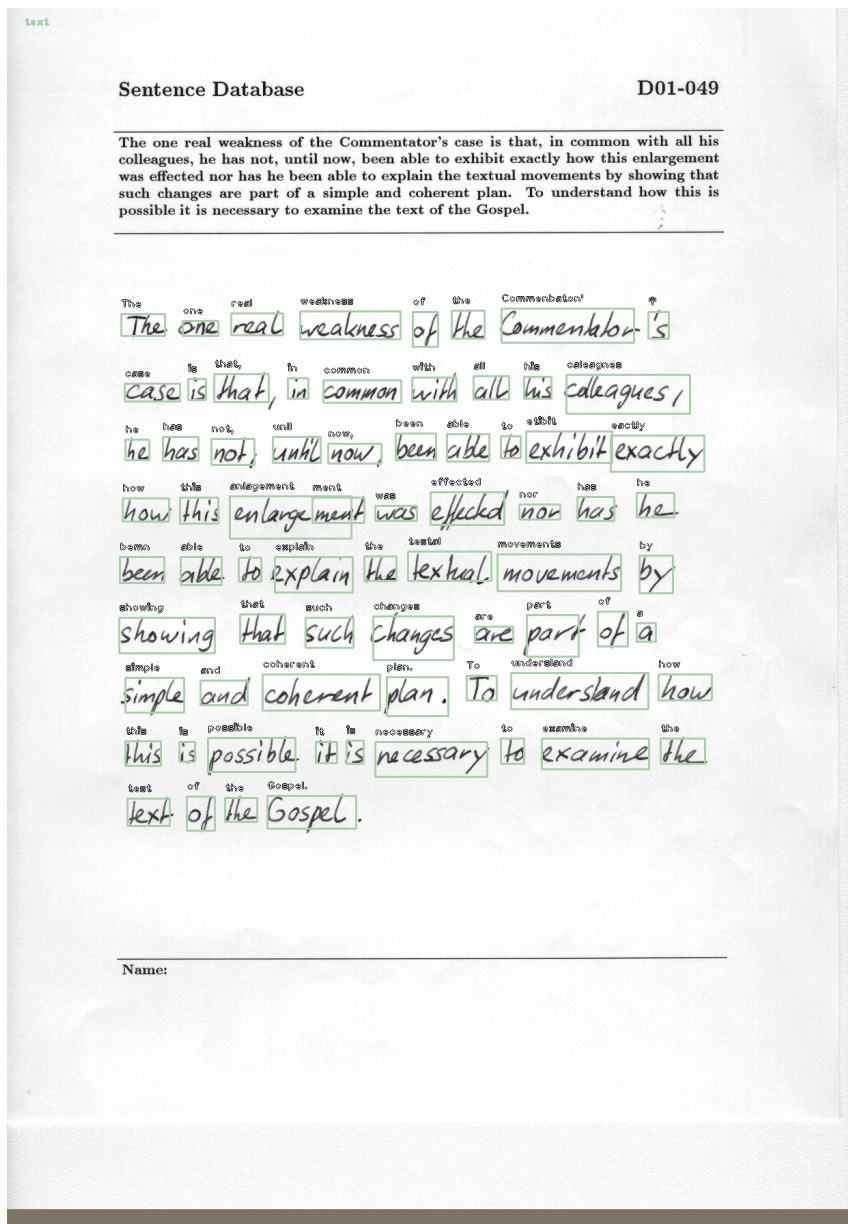 text
Sentence Database D01-049
The one real weakness of the Commentator's case is that, in common with all his
colleagues, he has not, until now, been able to exhibit exactly how this enlargement
was effected nor has he been able to explain the textual movements by showing that
such changes are part of a simple and coherent plan. To understand how this is
possible it is necessary to examine the text of the Gospel.
The one real weakness of the Commenbaton'
The one real weakness of the Commentator's
case is that, in common with, all his caleagnes
case is that, in common with all his colleagues,
he has not, unil now, been able to etibit eactly
he has not, until now, been able to exhibit exactly
how this anlagement ment was effected nor has he
how this enlargement was effected nor has he.
bemn able to explain the testal movements by
been able to explain the textual movements by
showing that such changes are part of a
showing that such changes are part of a
simple and coherent plan. To undersland how
simple and coherent plan. To understand how
this is possible it is necessary to examine the
this is possible it is necessary to examine the
test of the Gospel.
text of the Gospel.
Name: